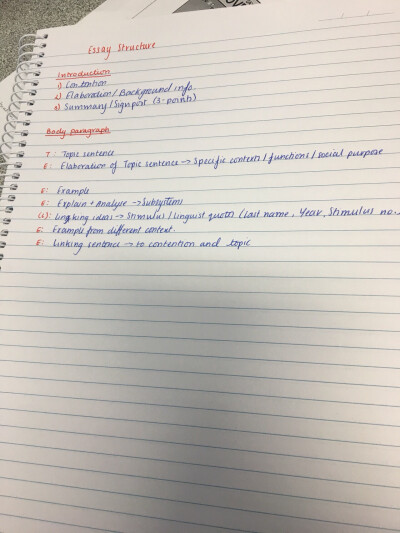 Essay Structure
Introduction
1) Contention
2) Elaboration / Background info.
3) Summary / Signpost (3-points)
Body paragraph
T: Topic sentence
E: Elaboration of Topic sentence → Specific contexts / functions / social purpose
E: Example
E: Explain + Analyse → Subsystems
(L): Linking ideas → Stimulus / Linguist quotes (Last name, Year, Stimulus no.
E: Example from different context.
E: Linking sentence → to contention and topic